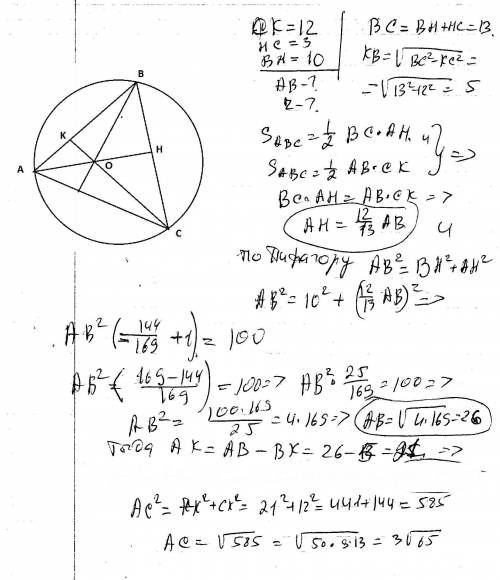 CK = 12
HC = 3
BH = 10
AB - ?
r - ?
BC = BH + HC = 13.
KB = √BC² - KC² =
= √13² - 12² = 5
B
K
O
H
A
C
S_ABC = 1/2 BC · AH. и
S_ABC = 1/2 AB · CK } =>
BC · AH = AB · CK =>
AH = 12/13 AB. и
по Пифагору AB² = BH² + AH²
AB² = 10² + (12/13 AB)² =>
AB² (-144/169 + 1) = 100
AB² = (169 - 144/169) = 100 => AB² · 25/169 = 100 =>
AB² = 100 · 169/25 = 4 · 169 => AB = √4 · 169 = 26
тогда AK = AB - BK = 26 - 5 = 21 =>
AC² = AK² + CK² = 21² + 12² = 441 + 144 = 585
AC = √585 = √50 · 9 · 13 = 3√65